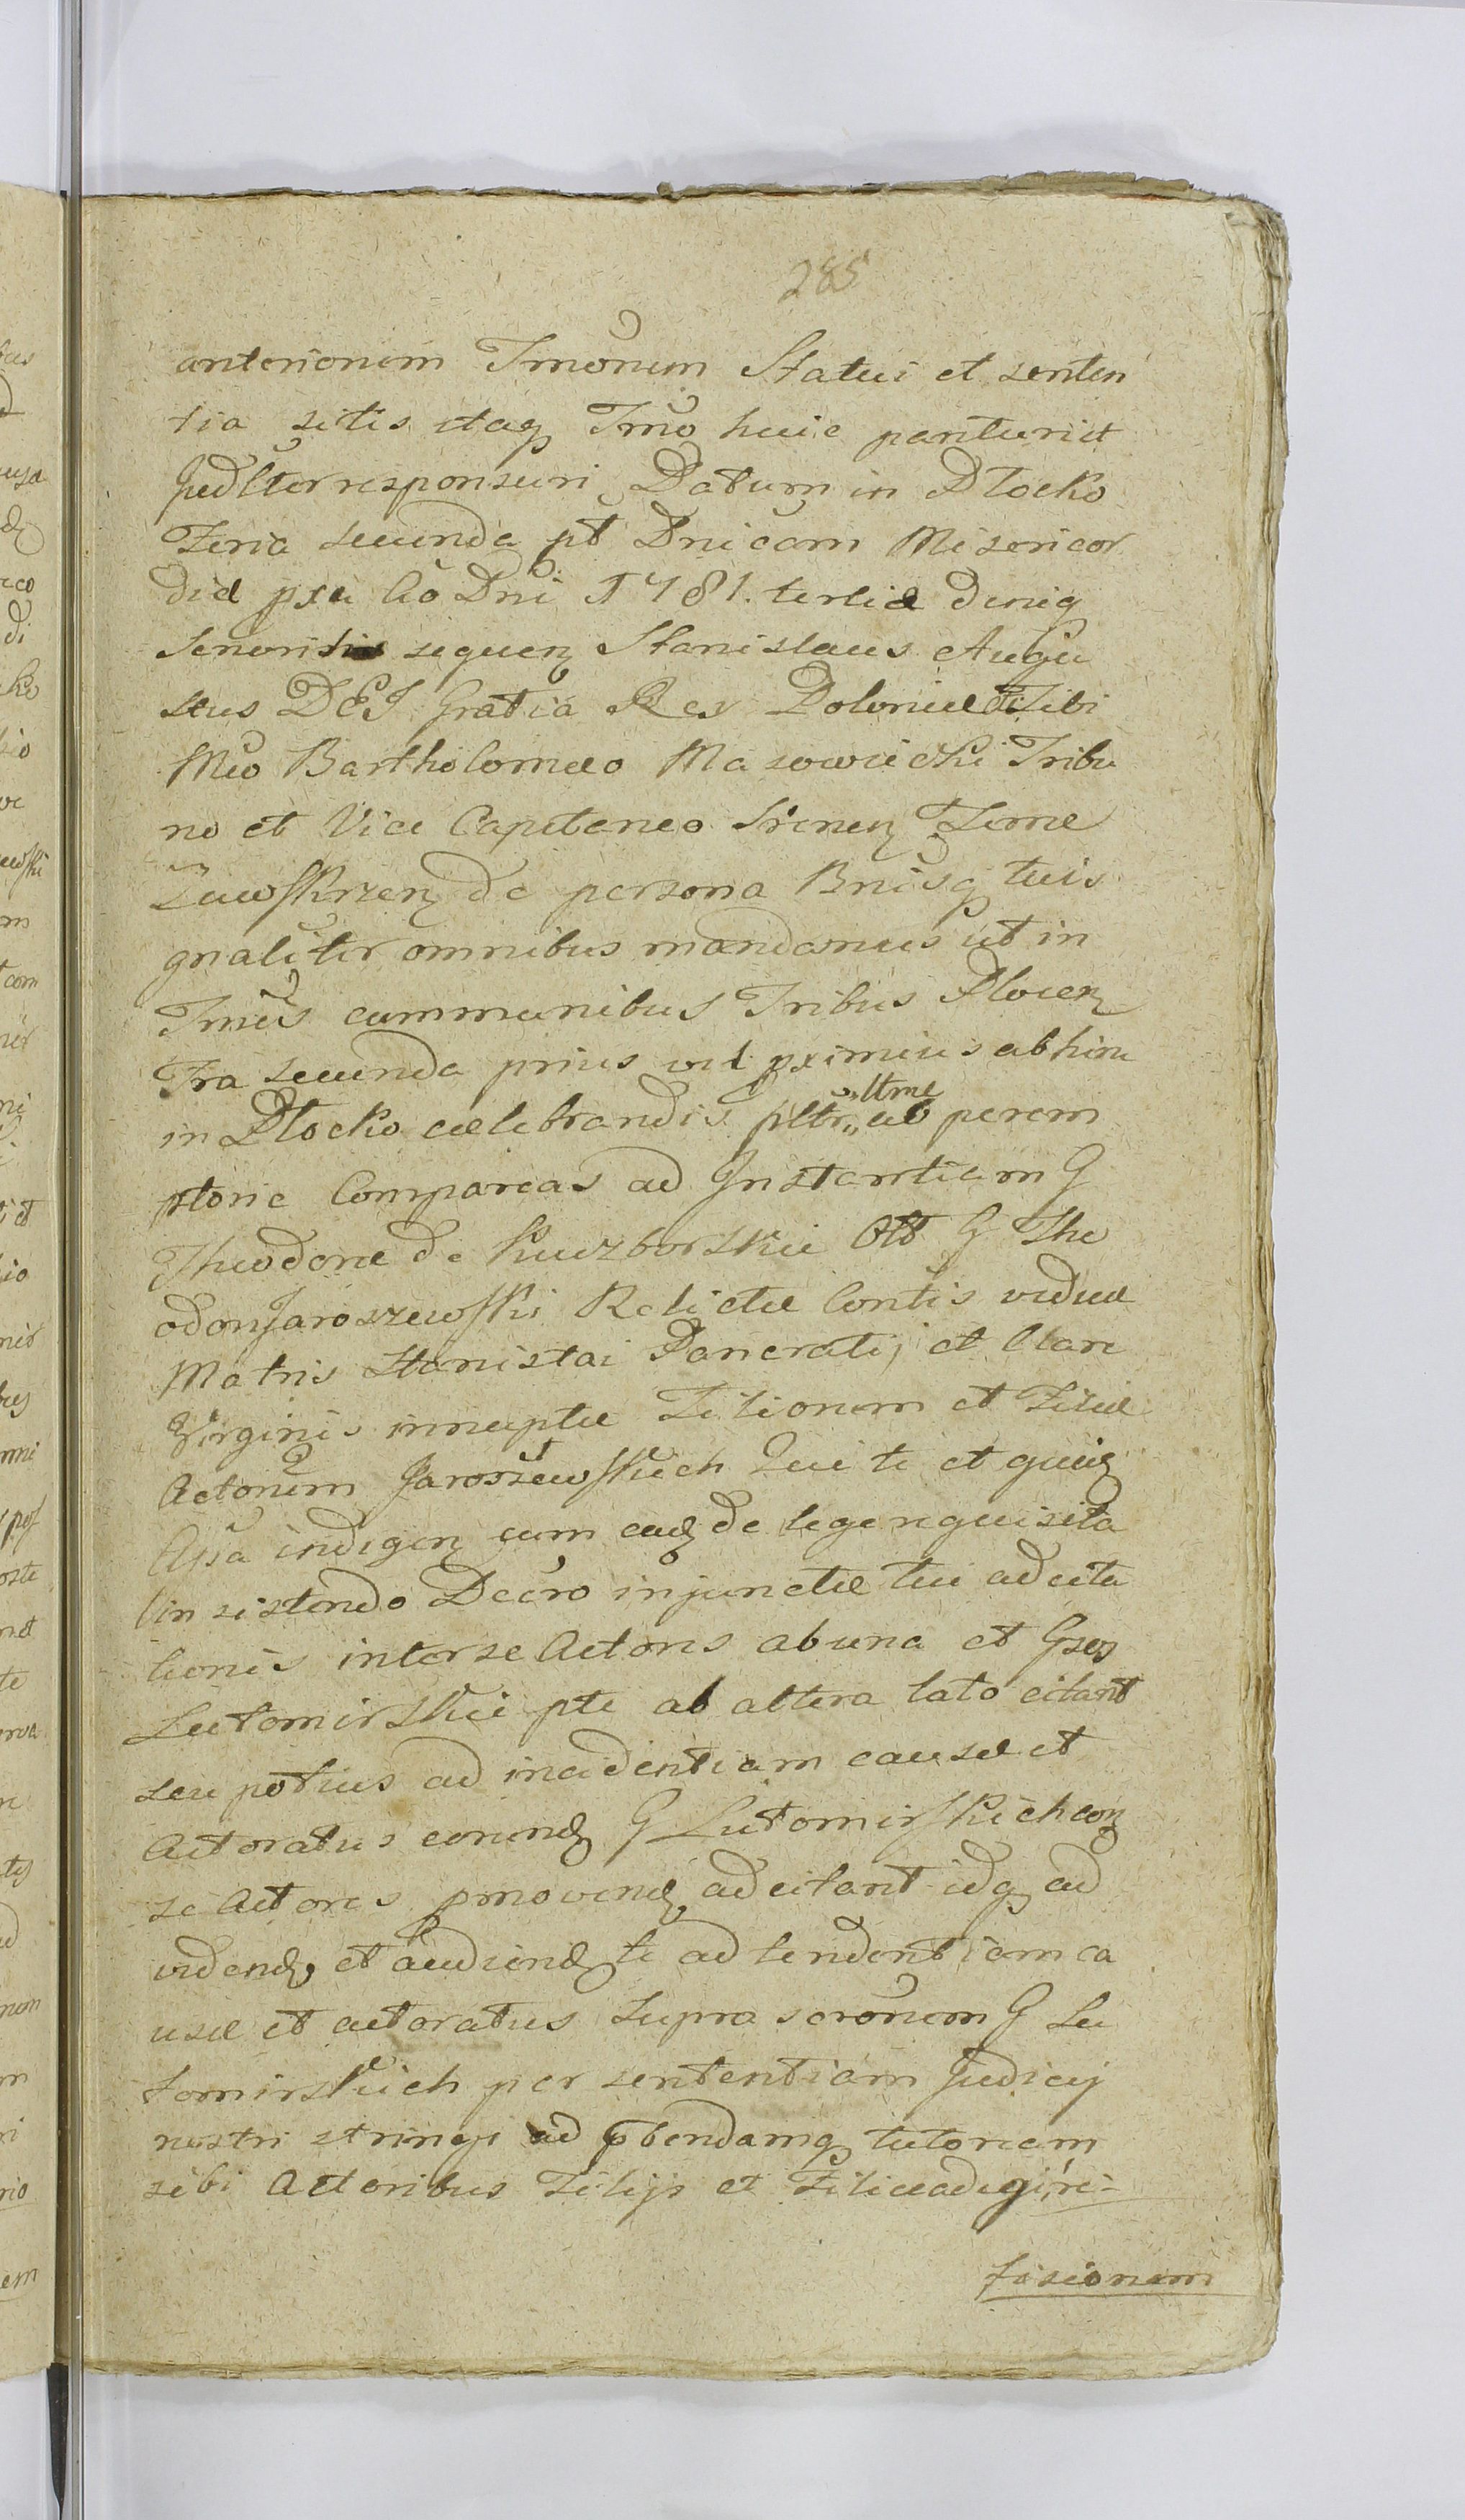 285
anteriorum Tmōrum Statui et senten
tia sitis itaq Tmō huic parituri et
Judltr responsuri Datum in Plocko
Feria secunda pt Dnicam Misericor
diæ pxa Aō Dni 1781. tertiæ deniq
Tenoris sequen Stanislaus Augu
stus DEI Gratia Rex Poloniæ Tibi
Mco Bartholomeo Mazowiecki Tribu
no et Vice Capitaneo Srenen Terræ
Zawskrzen de persona Bnisq tuis
gnaliter omnibus mandamus ut in
Tmis communibus Tribus Plocen
Fra secunda prius vel pximius abhinc
in Plocko celebrandis pltr ac peremptorie
ltme
ptorie Compareas ad Instantiam G
Theodoræ de Kuczborskie Olt G The
odori Jaroszewski Relictæ Contis viduæ
Matris Stanislai Pancratij et Claræ
Virginis innuptæ Filiorum et Filiæ
Actorum Jaroszewskich Qui te et quid
Apa indigen cum ead de lege requisita
insistendo Decro injunctæ tui adcita
tionis inter se Actores ab una et Gsos
Lutomirskie pte ab altera lato citant
seu potius ad incidentiam causæ et
Actoratus eorund G Lutomirskich con
se Actores pmovend adcitant idq ad
videnđ et audiend te ad tendentiam ca
usæ et actoratus supra scrorum G Lu
tomirskich per sententiam Judicij
nostri stringi ad pbendamq tutoream
sibi Actoribus Filijs et Filiæ adigi, re=
fusionem